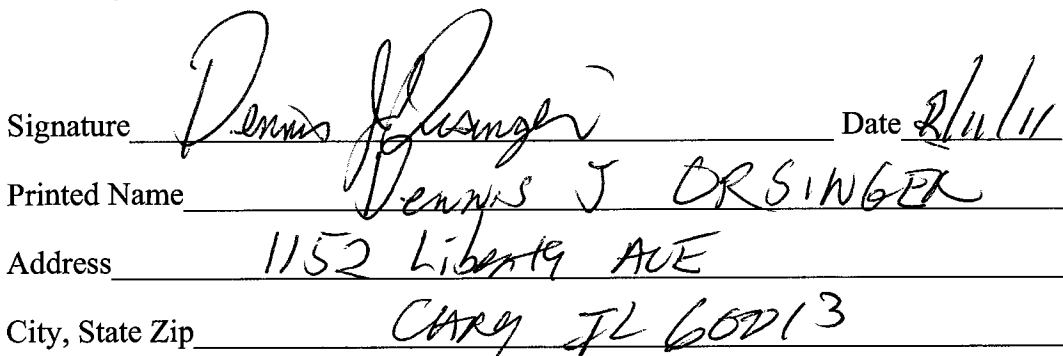 Signature Dennis J Orsinger Date 2/11/11
Printed Name Dennis J ORSINGER
Address 1152 Liberty AVE
City, State Zip CARY IL 60013